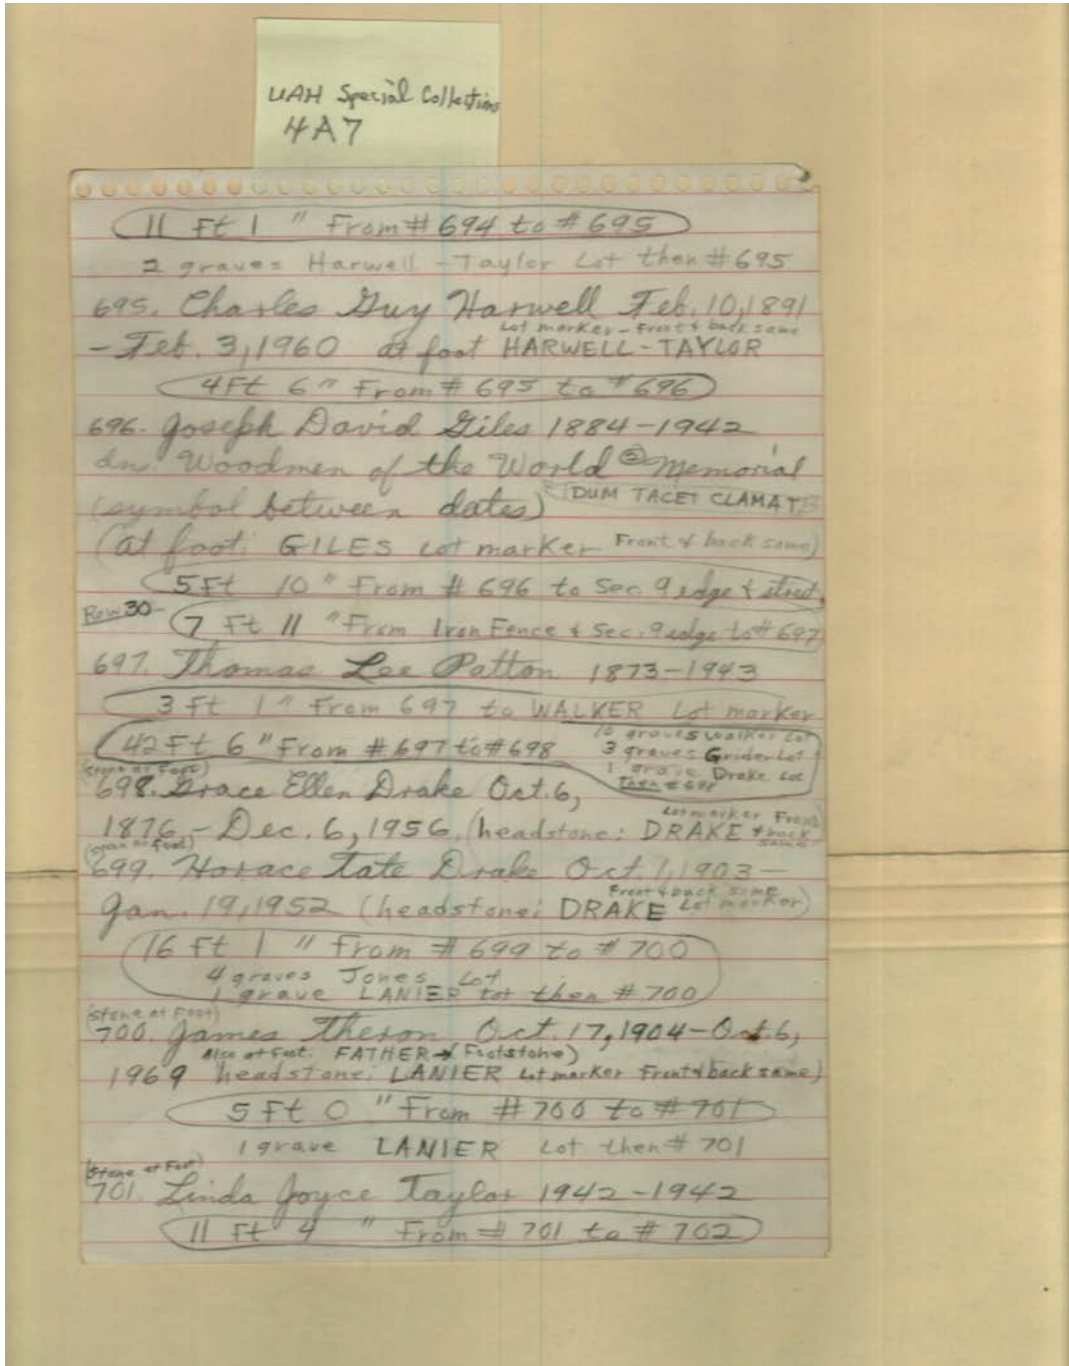 UAH Special Collections
4A7
11 Ft 1 " From # 694 to # 695
2 graves Harwell - Taylor Lot then # 695
695. Charles Guy Harwell Feb. 10, 1891
Lot marker - Front & back same
- Feb. 3, 1960 at foot HARWELL - TAYLOR
4 Ft 6 " From # 695 to # 696
696. Joseph David Giles 1884 - 1942
Woodmen of the World Memorial
(symbol between dates) DUM TACET CLAMAT
(at foot: GILES Lot marker Front & back same)
5 Ft 10 " From # 696 to Sec. 9 edge & street.
Row 30 -
7 Ft 11 " From Iron Fence & Sec. 9 edge to # 697
697. Thomas Lee Patton 1873 - 1943
3 Ft 1 " From 697 to WALKER Lot marker
42 Ft 6 " From # 697 to # 698
10 graves Walker Lot
3 graves Grider Lot
1 grave Drake Lot
then # 698
(stone at Foot)
698. Grace Ellen Drake Oct. 6,
1876 - Dec. 6, 1956 (headstone: DRAKE Lot marker Front & back same
(stone at foot)
699. Horace Tate Drake Oct. 1, 1903 -
Jan. 19, 1952 (headstone: DRAKE Front & back same Lot marker)
16 Ft 1 " From # 699 to # 700
4 graves Jones Lot
1 grave LANIER Lot then # 700
(stone at Foot)
700. James Theron Oct. 17, 1904 - Oct. 6,
Also at foot. FATHER → (Footstone)
1969 headstone: LANIER Lot marker Front & back same)
5 Ft 0 " From # 700 to # 701
1 grave LANIER Lot then # 701
(Stone at Foot)
701. Linda Joyce Taylor 1942 - 1942
11 Ft 4 " From # 701 to # 702